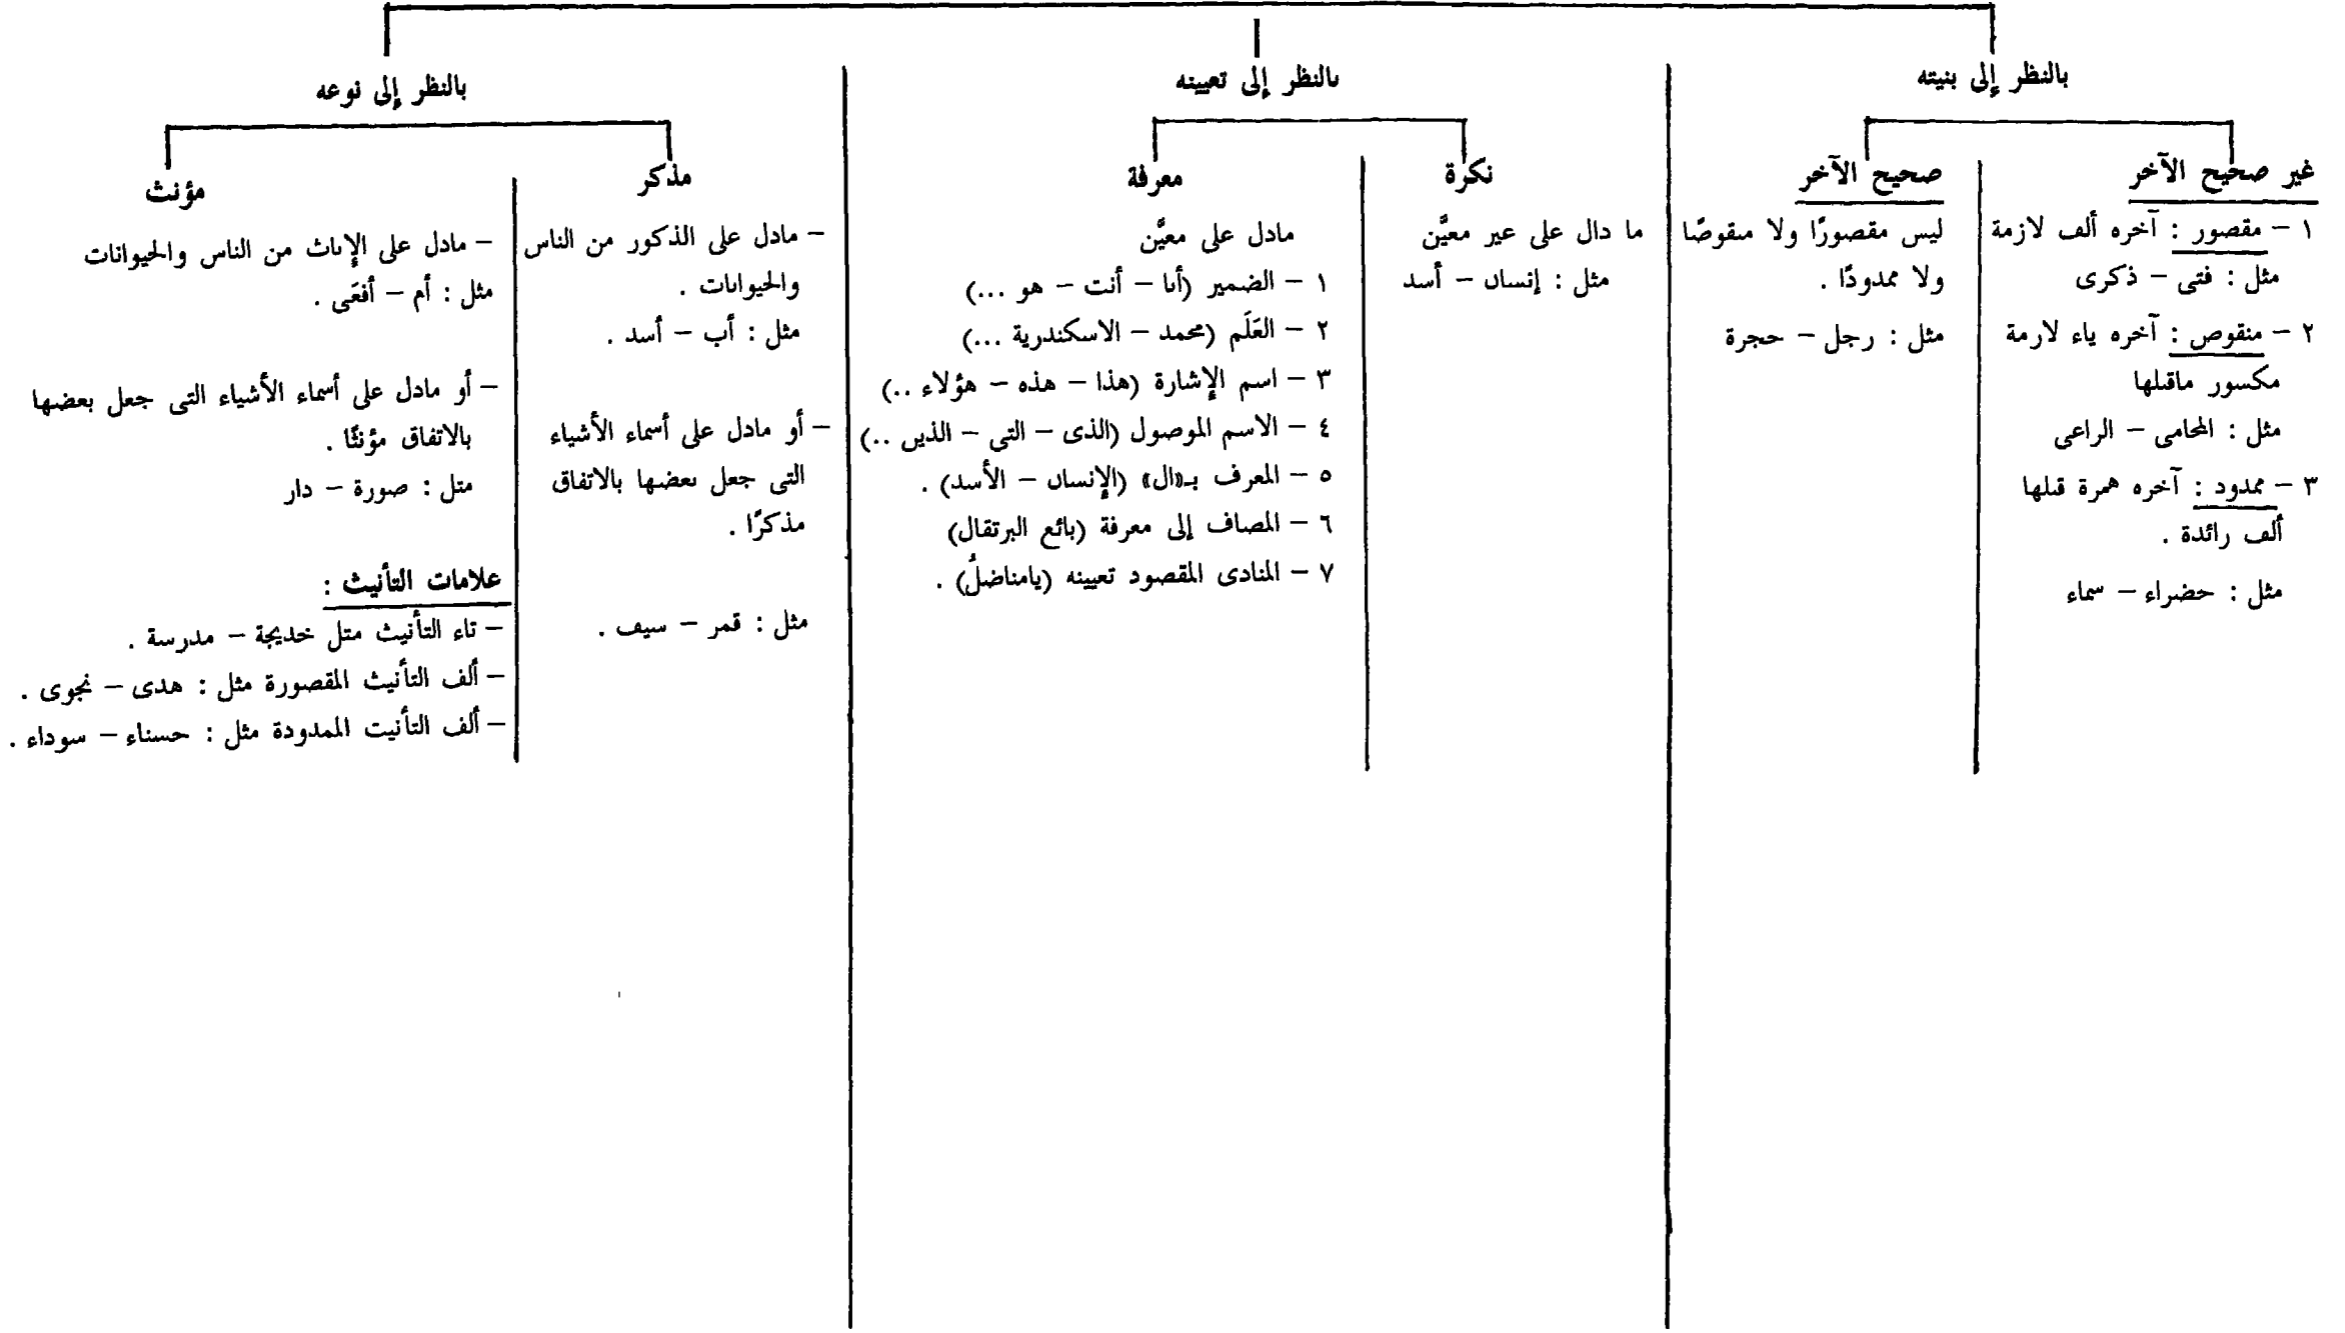 بالنظر إلى بنيته
غير صحيح الآخر
١ – مقصور : آخره ألف لازمة
مثل : فتى – ذكرى
٢ – منقوص : آخره ياء لارمة
مكسور ماقبلها
مثل : المحامى – الراعى
٣ – ممدود : آخره همرة قبلها
ألف رائدة .
مثل : حضراء – سماء
صحيح الآخر
ليس مقصورًا ولا منقوصًا
ولا ممدودًا .
مثل : رجل – حجرة
بالنظر إلى تعيينه
نكرة
ما دال على عير معيَّن
مثل : إنسان – أسد
معرفة
مادل على معيَّن
١ – الضمير (أنا – أنت – هو ...)
٢ – العَلَم (محمد – الاسكندرية ...)
٣ – اسم الإشارة (هذا – هذه – هؤلاء ..)
٤ – الاسم الموصول (الذى – التى – الذين ..)
٥ – المعرف بـ«ال» (الإنسان – الأسد) .
٦ – المصاف إلى معرفة (بائع البرتقال)
٧ – المنادى المقصود تعيينه (يامناضلُ) .
بالنظر إلى نوعه
مذكر
– مادل على الذكور من الناس
والحيوانات .
مثل : أب – أسد .
– أو مادل على أسماء الأشياء
التى جعل بعضها بالاتفاق
مذكرًا .
مثل : قمر – سيف .
مؤنث
– مادل على الإناث من الناس والحيوانات
مثل : أم – أفعَى .
– أو مادل على أسماء الأشياء التى جعل بعضها
بالاتفاق مؤنثًا .
متل : صورة – دار
علامات التأنيث :
– تاء التأنيث متل خديجة – مدرسة .
– ألف التأنيث المقصورة مثل : هدى – نجوى .
– ألف التأنيت الممدودة مثل : حسناء – سوداء .